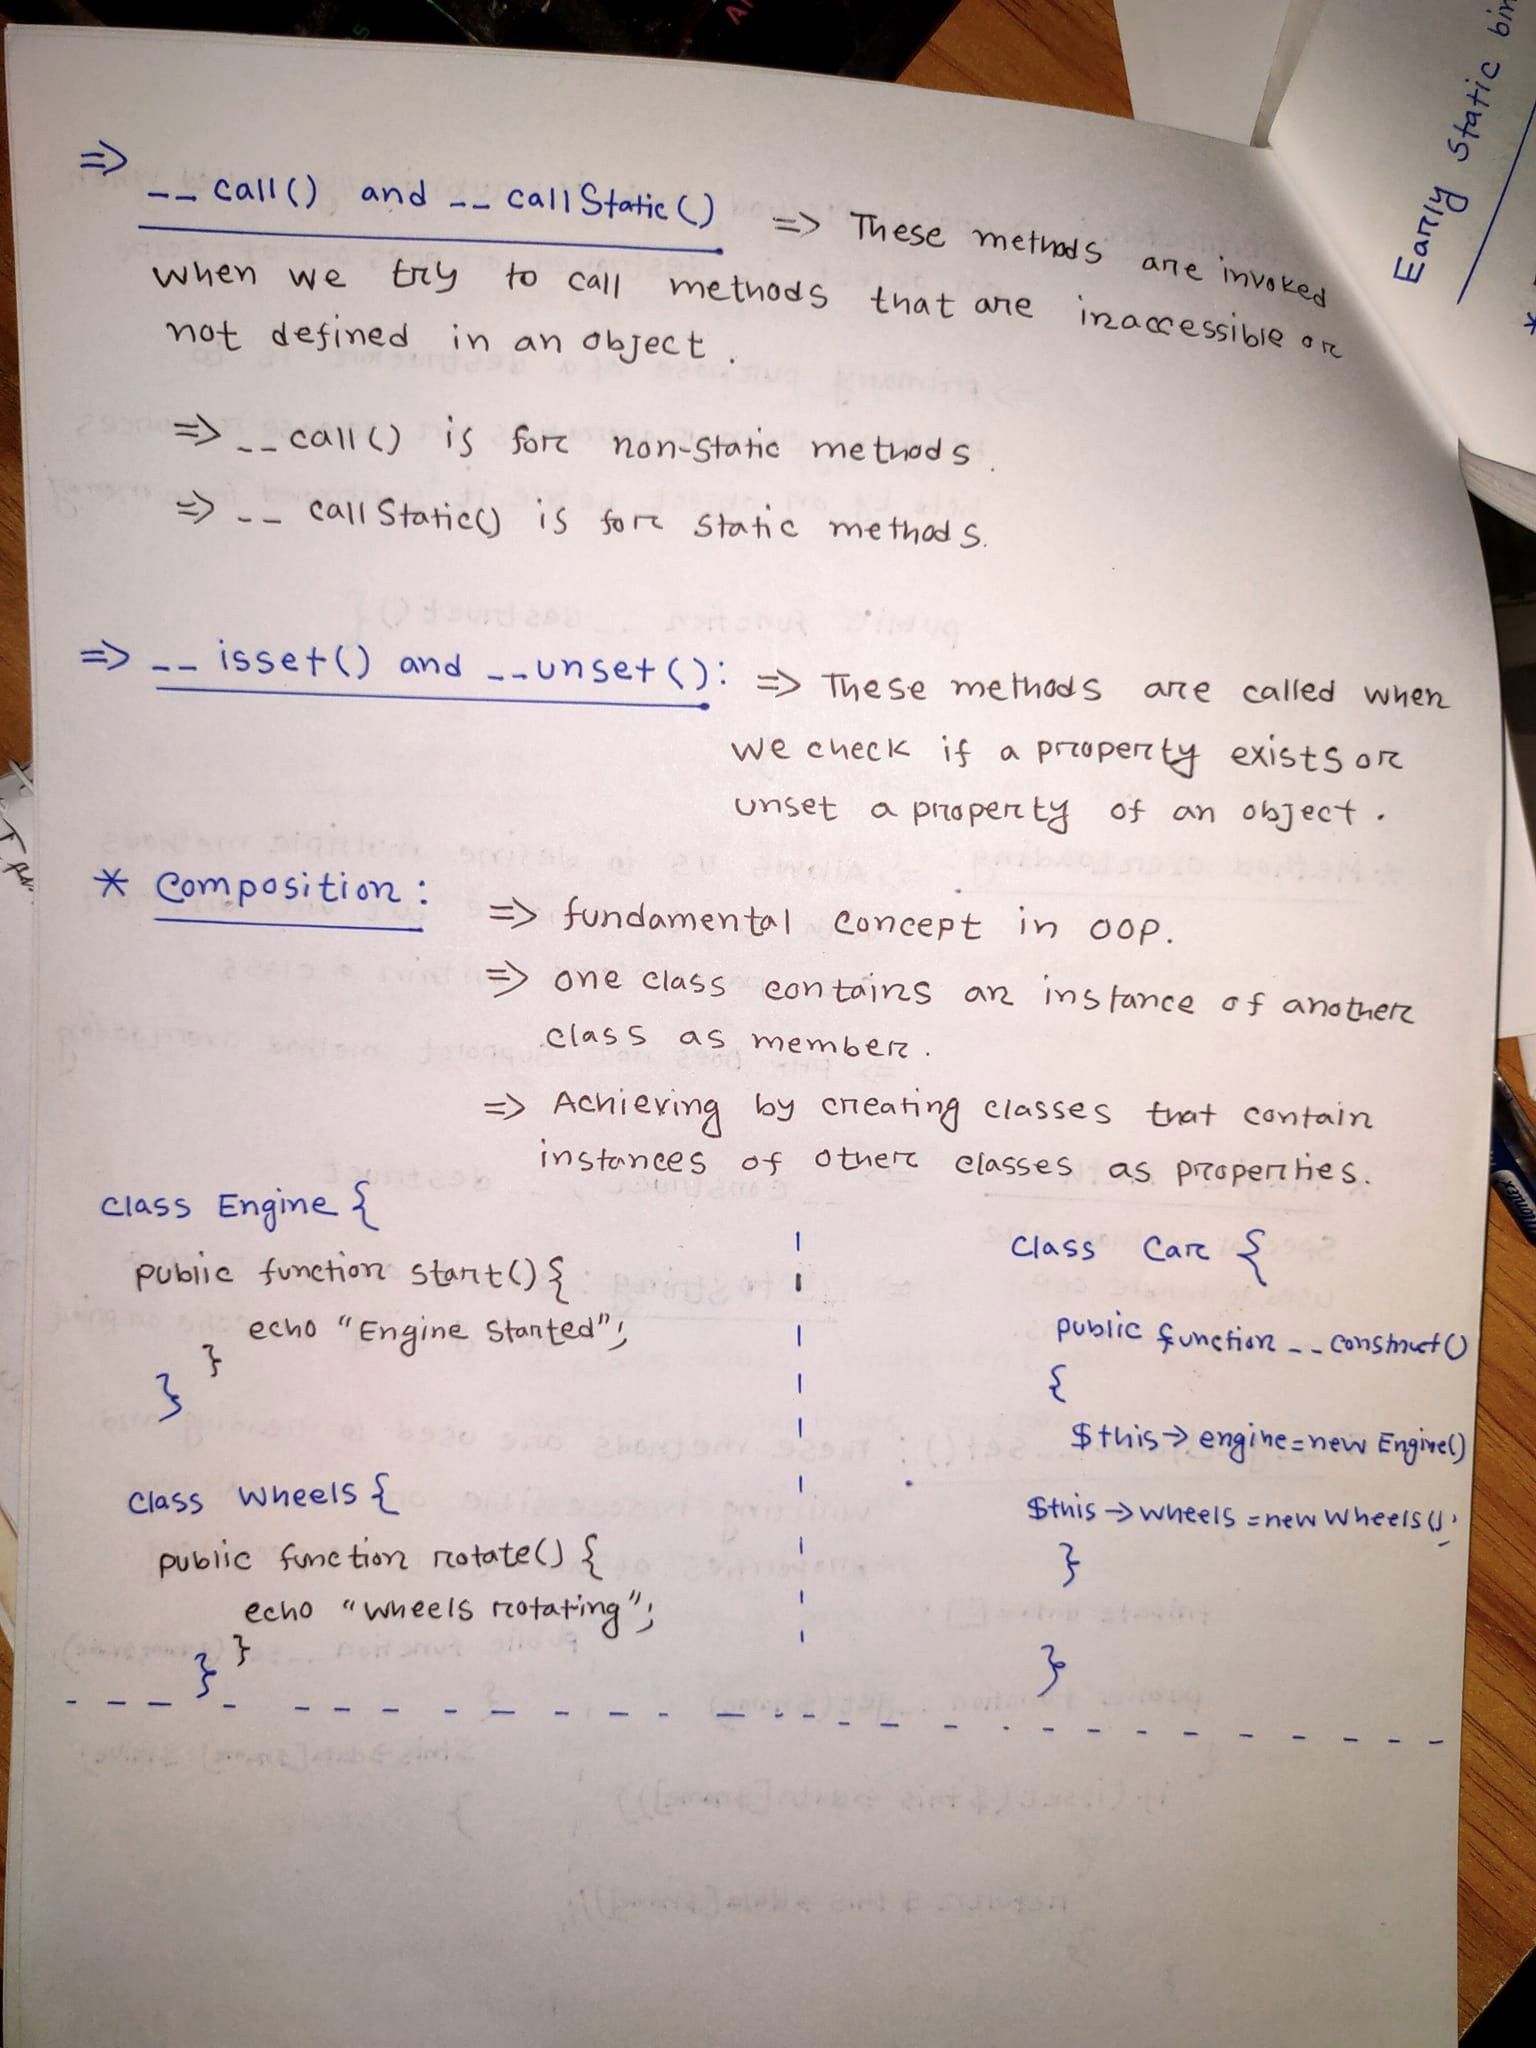 => __call() and __callStatic() => These methods are invoked
when we try to call methods that are inaccessible or
not defined in an object.
=> __call() is for non-static methods.
=> __callStatic() is for static methods.
=> __isset() and __unset(): => These methods are called when
we check if a property exists or
unset a property of an object.
* Composition: => fundamental concept in OOP.
=> one class contains an instance of another
class as member.
=> Achieving by creating classes that contain
instances of other classes as properties.
class Engine {
public function start() {
echo "Engine Started";
}
}
class Wheels {
public function rotate() {
echo "Wheels rotating";
}
}
class Car {
public function __construct()
{
$this->engine=new Engine()
$this->wheels=new Wheels();
}
}
Early Static
*